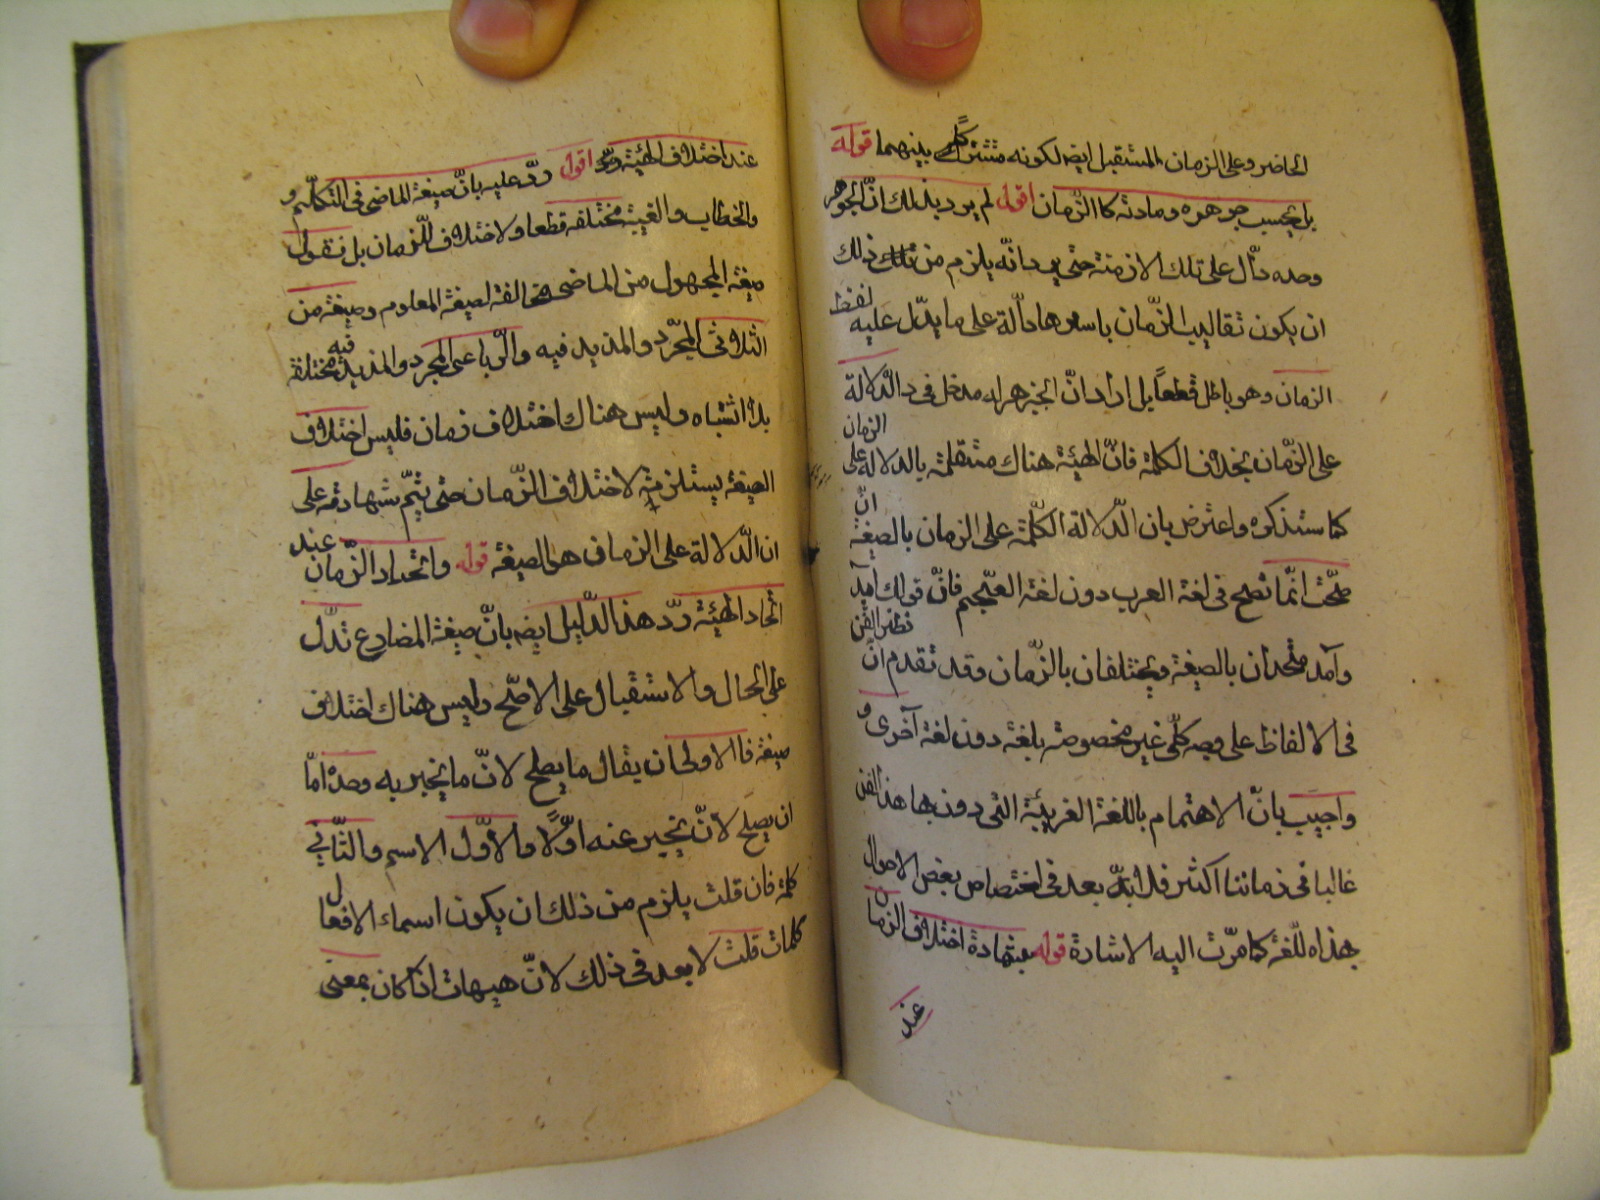 الحاضر وعلى الزمان المستقبل ايضه لكونه مشتركا بينهما قوله
بل بحسب جوهره ومادته كالزّمان اقول لم يرد بذلك انّ الجوهر
وحده دالّ على تلك الازمنة حتى يرد انّه يلزم من ذلك
ان يكون تقاليب الزّمان باسرها دالّة على ما يدلّ عليه لفظ
الزمان وهو باطل قطعاً بل اراد انّ الجوهر له مدخل فى الدّلالة
على الزّمان بخلاف الكلمة فانّ الهيئة هناك مستقلّة بالدلالة على الزمان
كما ستذكره واعترض بان الدّلالة الكلّمة على الزمان بالصيغة انّ
صحّت انّما تصح فى لغة العرب دون لغة العجم فانّ قولك آمد
وآيد متحدان بالصيغة ويختلفان بالزّمان وقد تقدم انّ نظر الفنّ
فى الالفاظ على وجه كلّى غير مخصوصة بلغة دون لغة آخرى و
واجيب بانّ الاهتمام باللغة العربيّة التى دون بها هذا الفن
غالبا فى زماننا اكثر فلا بعد فى اختصاص بعض الاحوال
بهذه اللّغة كما مرّت اليه الاشارة قوله بشهادة اختلاف الزمان
عند
عند اختلاف الهيئة اقول ردّ عليه بانّ صيغة الماضى فى التكلّم و
والخطاب والغيبة مختلفه قطعا ولا اختلاف للزّمان بل نقول
صيغة المجهول من الماضى مخالفة لصيغة المعلوم وصيغة من
الثلاثى المجرّد والمزيد فيه والرّباعى المجرد والمزيد فيه مختلفة
بلا اشتباه وليس هناك اختلاف زمان فليس اختلاف
الصيغة يستلزم لاختلاف الزّمان حتى يتمّ شهادته على
ان الدّلالة على الزمان هو الصيغة قوله واتحاد الزّمان عند
اتّحاد الهيئة ردّ هذا الدّليل ايضه بانّ صيغة المضارع تدّل
على الحال والاستقبال على الاصّح وليس هناك اختلاف
صيغة فالاولى ان يقال ما يصلح لانّ ما يخبر به وحده امّا
ان يصلح لانّ يخبر عنه اوّلاً والاوّل الاسم والثّاني
كلمة فان قلت يلزم من ذلك ان يكون اسماء الافعال
كلمات قلت لا بعد فى ذلك لانّ هيهات اذا كان بمعنى